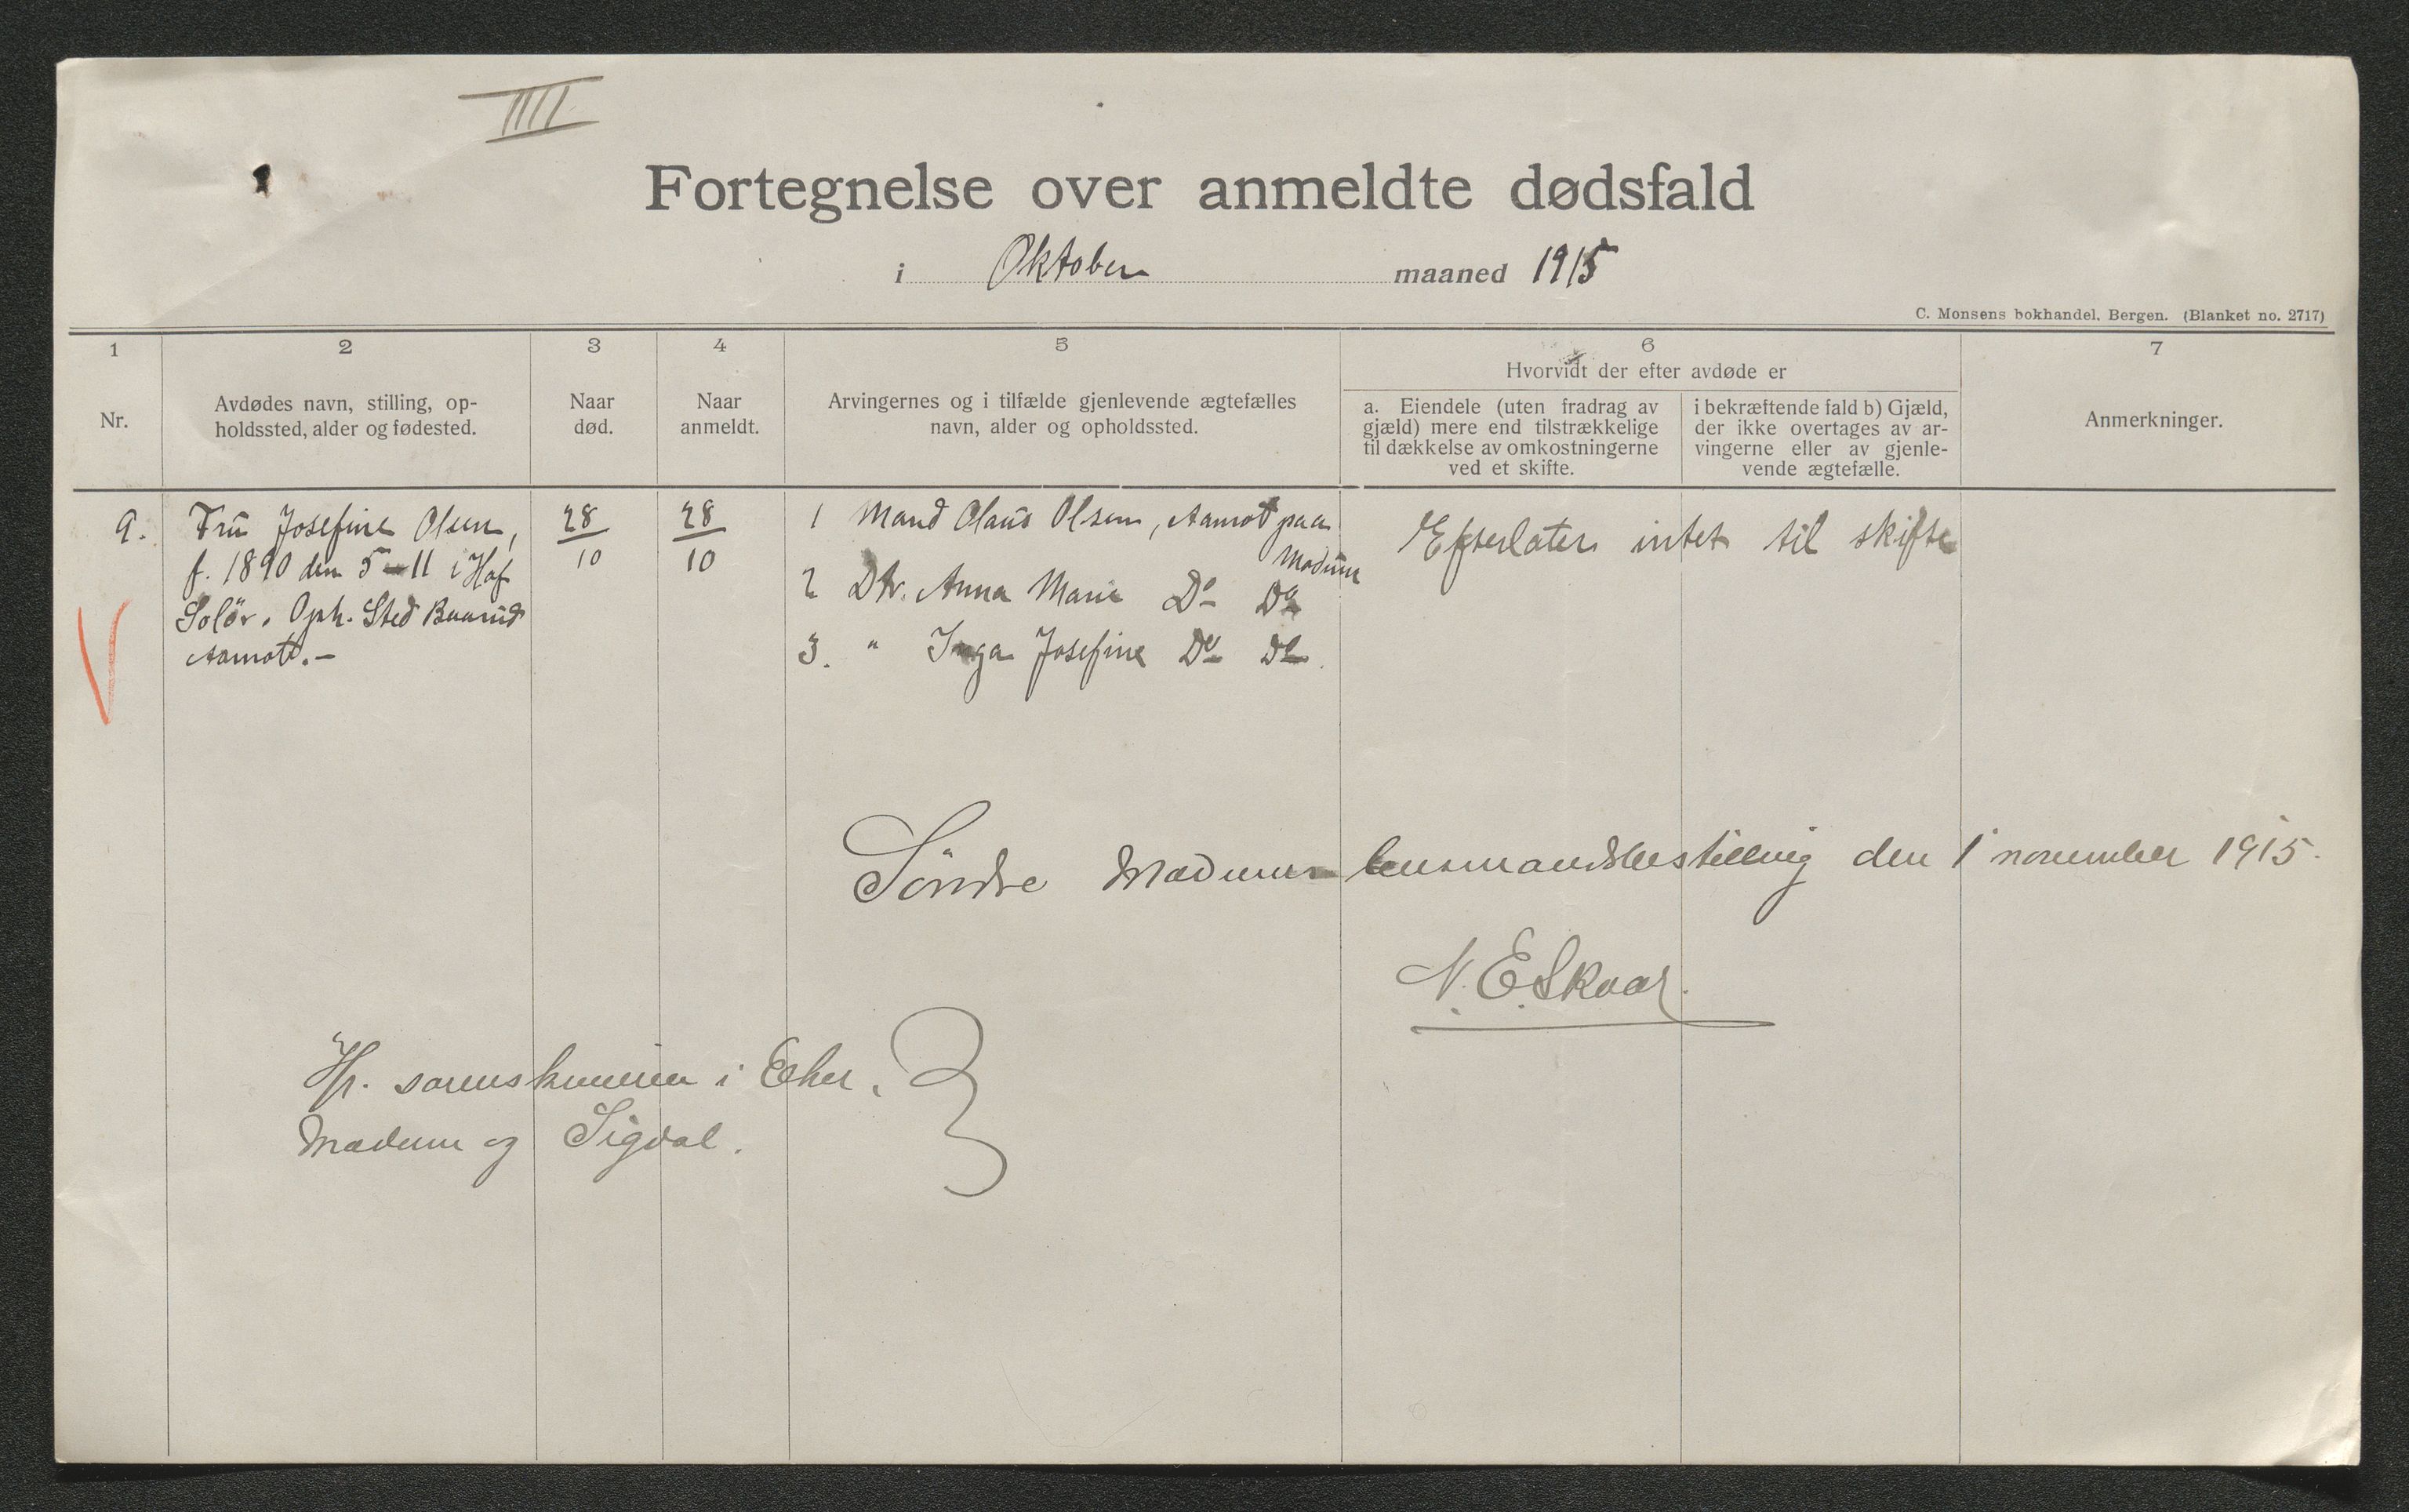 IIII
Fortegnelse over anmeldte dødsfald
i Oktober maaned 1915
C. Monsens bokhandel, Bergen. (Blanket no. 2717)
1
2
3
4
5
6
7
Nr.
Avdødes navn, stilling, op-
holdssted, alder og fødested.
Naar
død.
Naar
anmeldt.
Arvingernes og i tilfælde gjenlevende ægtefælles
navn, alder og opholdssted.
Hvorvidt der efter avdøde er
a. Eiendele (uten fradrag av
gjæld) mere end tilstrækkelige
til dækkelse av omkostningerne
ved et skifte.
i bekræftende fald b) Gjæld,
der ikke overtages av ar-
vingerne eller av gjenle-
vende ægtefælle.
Anmerkninger.
9.
Fru Josefine Olsen,
f. 1890 den 5-11 i Hof
Solør. Oph. Sted Buarud
Aamot.-
28
10
28
10
1 Mand Olaus Olsen, Aamot paa
Modum
2 Dtr. Anna Marie Do Do
3. " Inga Josefine Do Do.
Efterlater intet til skifte
Söndre Modum lensmandsbestilling den 1 november 1915.
N. E. Skaar.
Hr. sorenskriveren i Eker,
Modum og Sigdal.